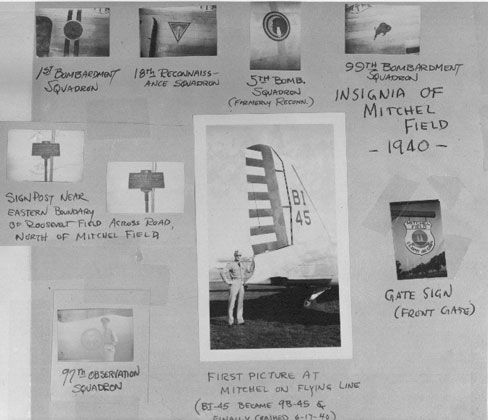 1ST BOMBARDMENT
SQUADRON
18TH RECONNAISS-
ANCE SQUADRON
5TH BOMB.
SQUADRON
(FORMERLY RECONN.)
99TH BOMBARDMENT
SQUADRON
INSIGNIA OF
MITCHEL
FIELD
- 1940 -
SIGNPOST NEAR
EASTERN BOUNDARY
OF ROOSEVELT FIELD ACROSS ROAD,
NORTH OF MITCHEL FIELD
BI
45
MITCHEL
FIELD
GATE SIGN
(FRONT GATE)
97TH OBSERVATION
SQUADRON
FIRST PICTURE AT
MITCHEL ON FLYING LINE
(BI-45 BECAME 9B-45 &
FINALLY CRASHED 6-17-40)